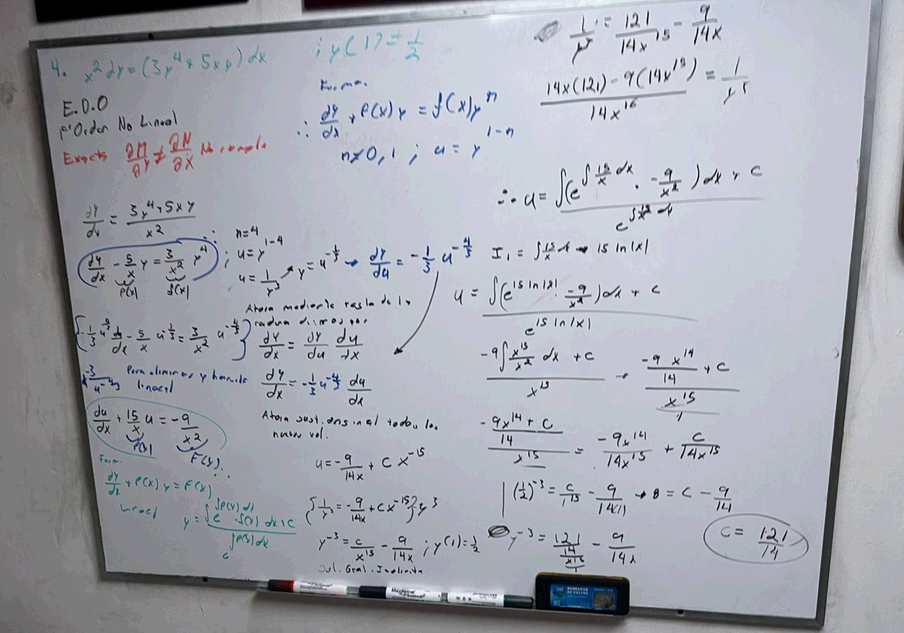 4. x² dy = (3y⁴ + 5xy) dx ; y(1) = 1/2
E.D.O
1° Orden No Lineal
Exacta ∂M/∂y ≠ ∂N/∂x No cumple
Forma.
∴ dy/dx + P(x) y = f(x) yⁿ
n≠0,1 ; u = y^(1-n)
dy/dx = (3y⁴+5xy)/x²
dy/dx - 5/x y = 3/x² y⁴
P(x) f(x)
∴ n=4
; u=y^(1-4)
u = 1/y³ → y = u^(-1/3) → dy/du = -1/3 u^(-4/3)
Ahora mediante regla de la
dy/dx = dy/du du/dx
dy/dx = -1/3 u^(-4/3) du/dx
{-1/3 u^(-4/3) du/dx - 5/x u^(-1/3) = 3/x² u^(-4/3)}
Para eliminar y hacerlo
lineal
du/dx + 15/x u = -9/x²
P(x) F(x)
Form.
dy/dx + P(x) y = F(x)
Lineal
y = (∫e^(∫P(x) dx) · f(x) dx + c)/e^(∫P(x) dx)
Ahora sust. en
u = -9/14x + C x^(-15)
{1/y³ = -9/14x + Cx^(-15)} y³
y^(-3) = c/x^15 - 9/14x ; y(1)=1/2
Sol. Gral. Implicita
1/y³ = 121/14x^15 - 9/14x
(14x(121) - 9(14x^15))/14x^16 = 1/y³
∴ u = (∫(e^(∫15/x dx) · -9/x²) dx + c)/e^(∫15/x dx)
I₁ = ∫15/x dx → 15 ln|x|
u = (∫(e^(15 ln|x|) · -9/x²) dx + c)/e^(15 ln|x|)
(-9∫x^15/x² dx + c)/x^15 → (-9x^14/14 + c)/(x^15/1)
(-9x^14 + c/14)/x^15 = -9x^14/14x^15 + c/14x^15
(1/2)^(-3) = c/1^15 - 9/14(1) → 8 = c - 9/14
y^(-3) = 121/14/x^15/1 - 9/14x
c = 121/14